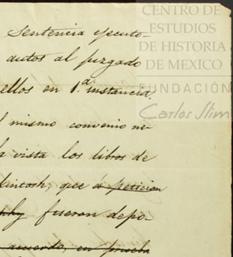 CENTRO DE
ESTUDIOS
DE HISTORIA
DE MEXICO
FUNDACIÓN
Carlos Slim
Sentencia ejecuto-
autos al juzgado
ellos en 1ª instancia.
l mismo convenio ne-
la vista los libros de
kintosh, que á peticion
fueron depo-
acuerdo, en prueba